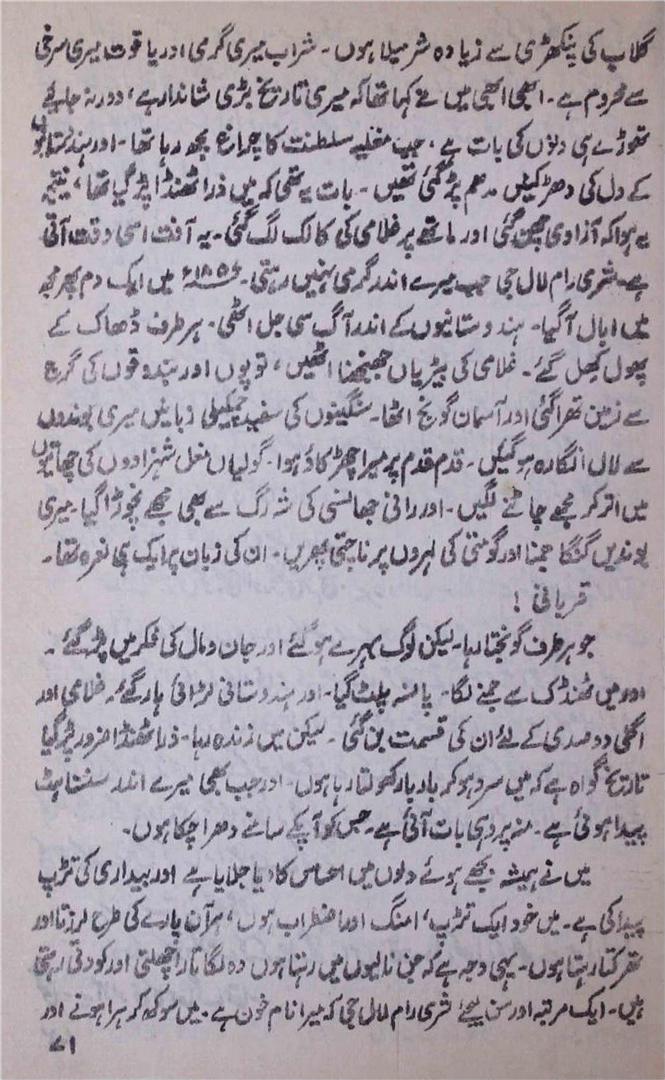 گلاب کی پنکھڑی سے زیادہ شرمیلا ہوں۔ شراب میری گرمی اور یاقوت میری سرخی
سے محروم ہے۔ ابھی ابھی میں نے کہا تھا کہ میری تاریخ بڑی شاندار ہے، دور نہ جایئے
تھوڑے ہی دنوں کی بات ہے، جب مغلیہ سلطنت کا چراغ بجھ رہا تھا۔ اور ہندوستانیوں
کے دل کی دھڑکنیں مدھم پڑ گئی تھیں۔ بات یہ تھی کہ میں ذرا ٹھنڈا پڑ گیا تھا، نتیجہ
یہ ہوا کہ آزادی چھن گئی اور ماتھے پر غلامی کی کالک لگ گئی۔ یہ آفت اسی وقت آتی
ہے۔ شری رام لال جی جب میرے اندر گرمی نہیں رہتی۔ ۱۸۵۷ء میں ایک دم پھر مجھ
میں ابال آگیا۔ ہندوستانیوں کے اندر آگ سی جل اٹھی۔ ہر طرف ڈھاک کے
پھول کھل گئے۔ غلامی کی بیڑیاں جھنجھنا اٹھیں، توپوں اور بندوقوں کی گرج
سے زمین تھرا گئی اور آسمان گونج اٹھا۔ سنگینوں کی سفید چمکیلی زبانیں میری بوندوں
سے لال انگارہ ہو گئیں۔ قدم قدم پر میرا چھڑکاؤ ہوا۔ گولیاں مغل شہزادوں کی چھاتیوں
میں اتر کر مجھے چاٹنے لگیں۔ اور رانی جھانسی کی شہ رگ سے بھی مجھے نچوڑا گیا۔ میری
بوندیں گنگا جمنا اور گومتی کی لہروں پر ناچتی پھریں۔ ان کی زبان پر ایک ہی نعرہ تھا۔
قربانی !
جو ہر طرف گونجتا رہا۔ لیکن لوگ بہرے ہو گئے اور جان و مال کی فکر میں پڑ گئے۔
اور میں ٹھنڈک سے جمنے لگا۔ پانسہ پلٹ گیا۔ اور ہندوستانی لڑائی ہار گئے۔ غلامی اور
اگلی دو صدی کے لئے ان کی قسمت بن گئی۔ لیکن میں زندہ رہا۔ ذرا ٹھنڈا ضرور پڑ گیا
تاریخ گواہ ہے کہ میں سرد ہو کر بار بار کھولتا رہا ہوں۔ اور جب بھی میرے اندر سنسناہٹ
پیدا ہوئی ہے۔ منہ پر وہی بات آئی ہے۔ جس کو آپکے سامنے دھرا چکا ہوں۔
میں نے ہمیشہ بجھے ہوئے دلوں میں احساس کا دیا جلایا ہے اور بیداری کی تڑپ
پیدا کی ہے۔ میں خود ایک تڑپ، امنگ اور اضطراب ہوں، ہر آن پارے کی طرح لرزتا اور
تھرکتا رہتا ہوں۔ یہی وجہ ہے کہ جن نالیوں میں رہتا ہوں وہ لگاتار اچھلتی اور کودتی رہتی
ہیں۔ ایک مرتبہ اور سن لیجئے شری رام لال جی کہ میرا نام خون ہے۔ میں سوکھ کر ہرا ہونے اور
۷۱